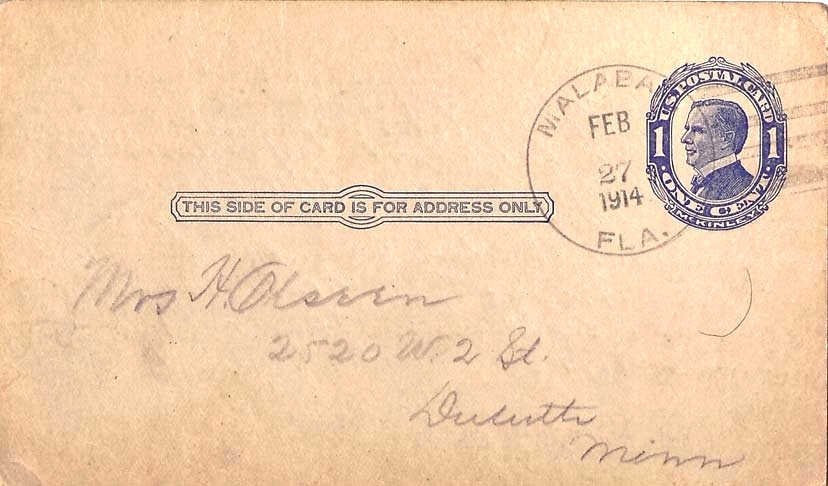 MALABA
FEB
27
1914
FLA.
U.S. POSTAL CARD
1 1
· ONE CENT ·
McKINLEY
THIS SIDE OF CARD IS FOR ADDRESS ONLY
Mrs H. Olseen
2520 W. 2 St.
Duluth
Minn